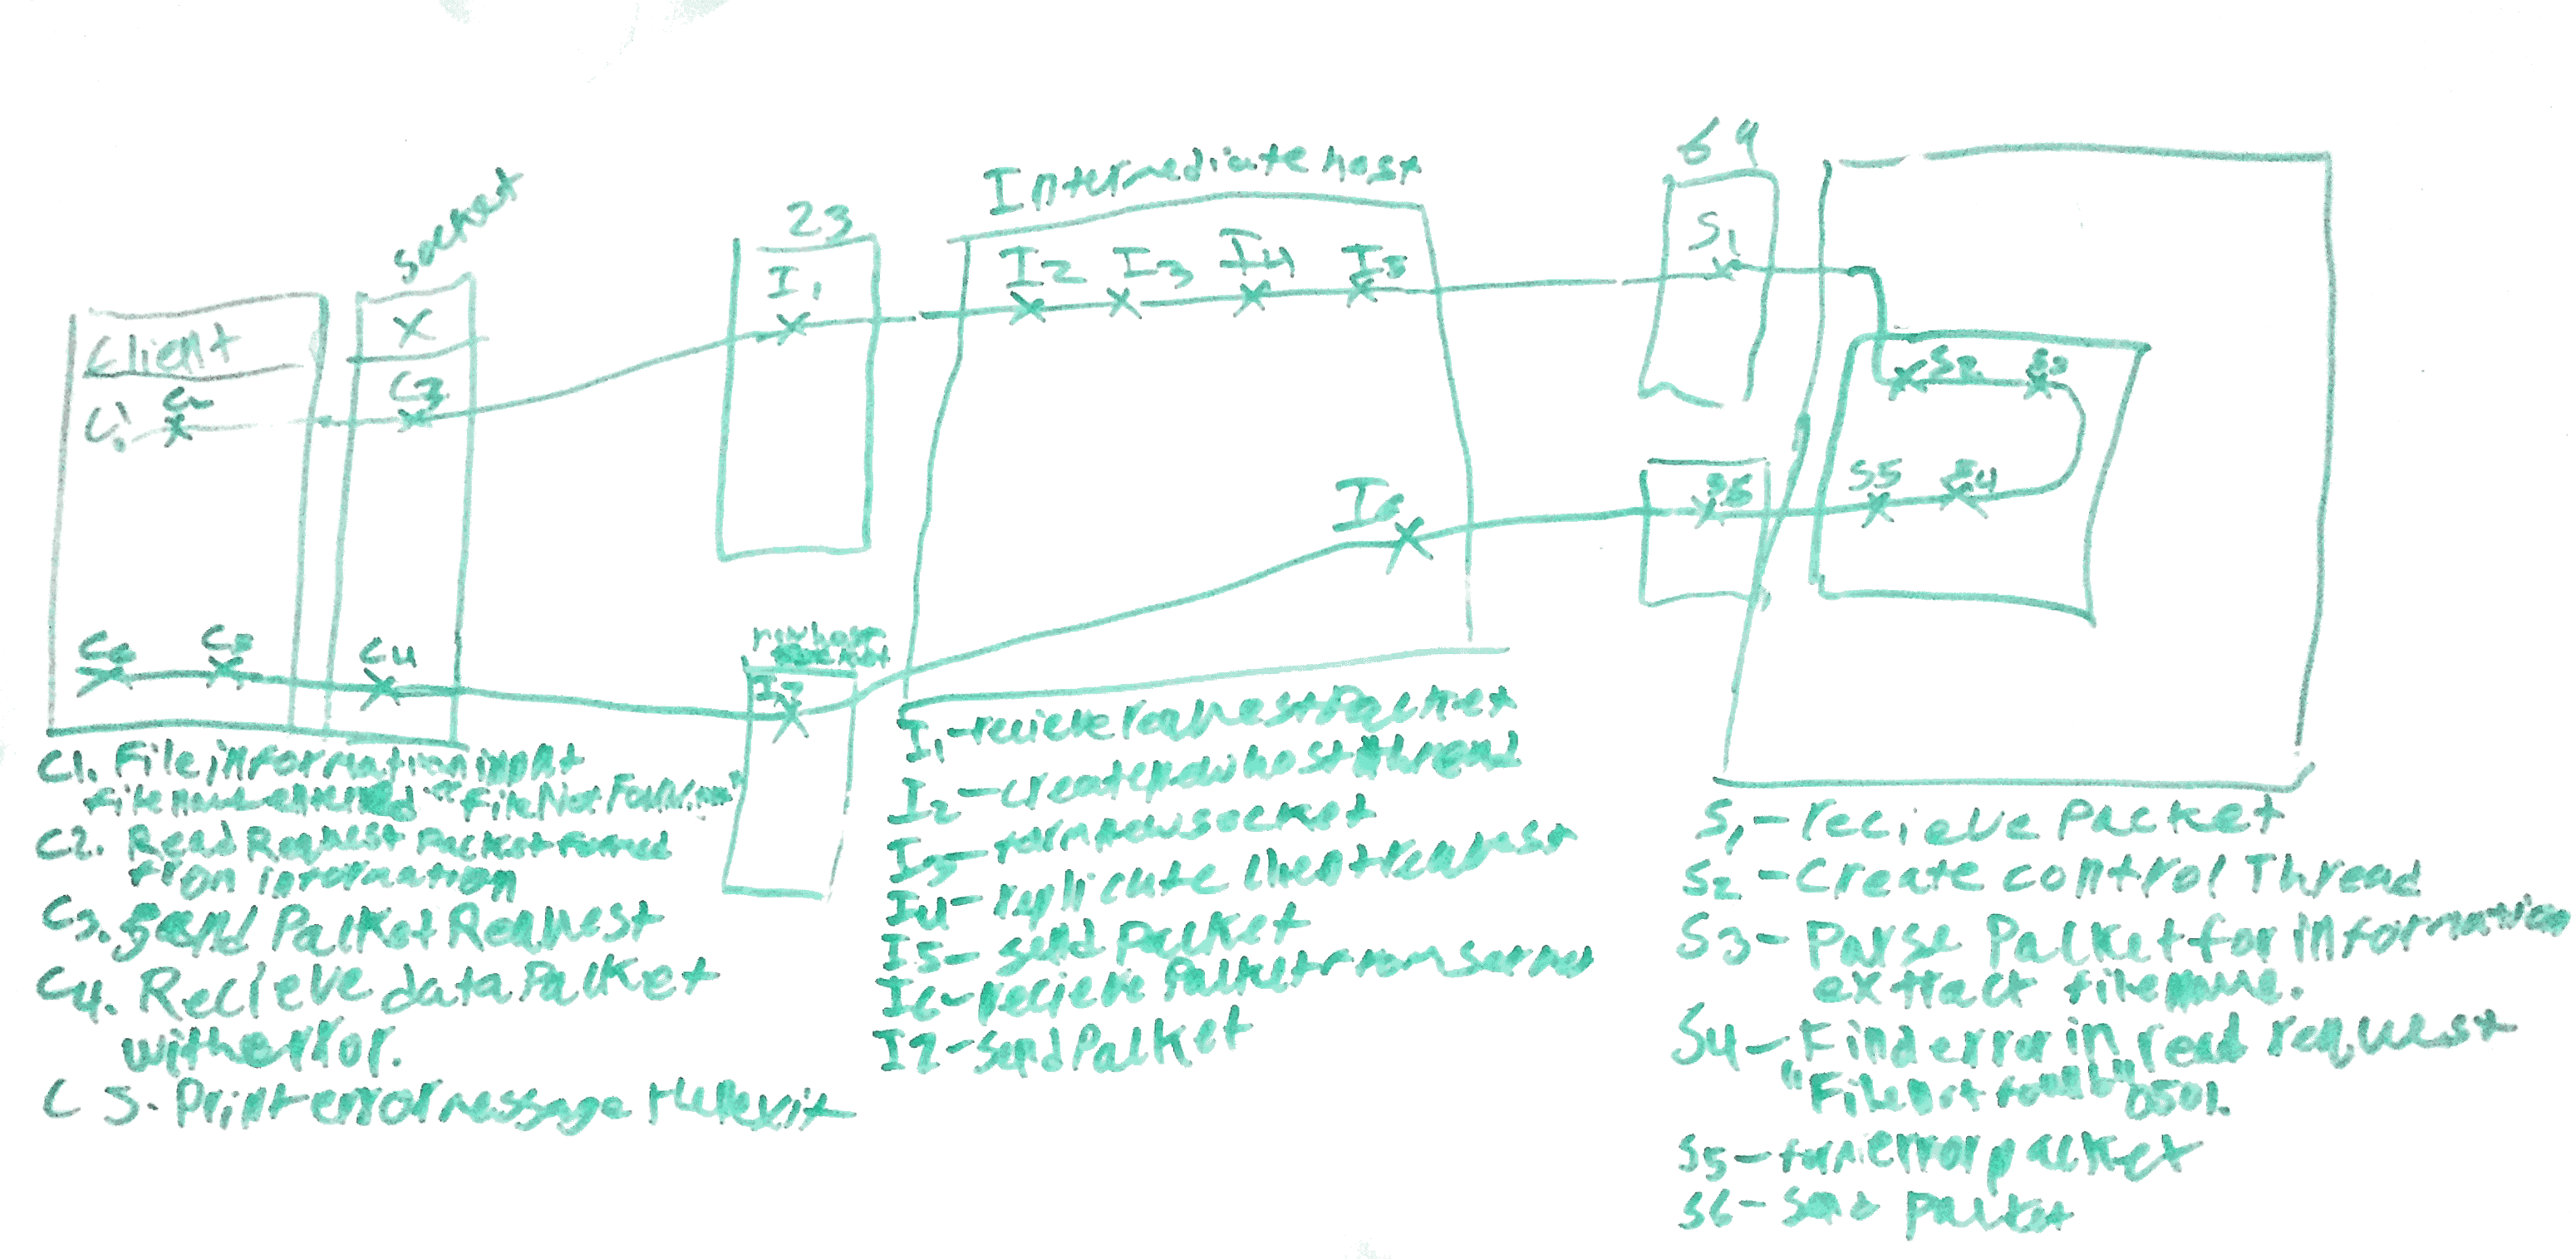 socket
23
Intermediate host
69
Client
X
C1
C2
C3
I1
I2
I3
I4
I5
S1
S2
S3
S4
S5
S6
I6
I7
C4
C5
C6
new host
C1. File information input
file name entered "File Not Found
C2. Read Request Packet formed
from information
C3. Send Packet Request
C4. Recieve data Packet
with error.
C5. Print error message then exit
I1 - recieve request Packet
I2 - create new host thread
I3 - form new socket
I4 - replicate client request
I5 - send packet
I6 - recieve Packet from server
I7 - send Packet
S1 - recieve Packet
S2 - Create control Thread
S3 - Parse Packet for information
extract filename.
S4 - Find error in read request
"File not found" 0501.
S5 - form error packet
S6 - Send packet